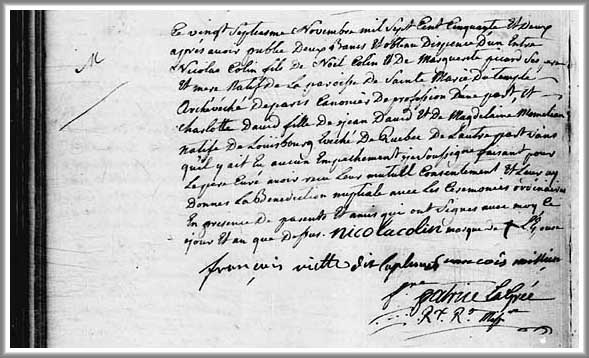 M
Ce vingt Septiesme Novembre mil Sept Cent Cinquante Et deux
après avoir publié Deux Bancs Et obtenu Dispence D'un Entre
Nicolas Colin fils de Noël Colin Et De Marguerite picard Ses pere
Et mere Natif de La paroisse de Sainte Marie Du temple
Archévéché De paris Canonier De profession D'une part, Et
Charlotte David fille De jean David Et De Magdelaine
natife De Louisbourg Evéché De Quebec De Lautre part Sans
qu'il y ait Eu aucun Empechement je Soussigné faisant pour
Le pere Curé avoir receu Leur mutuell Consentement Et Leur ay
Donnes La Benediction nuptiale avec Les Ceremonies ordinaires
En presence De parents Et amis qui ont Signes avec moy Le
jour Et an que De Sus. nicolacolin marque de + L'Epouse
françois viette dit Laplume
frere patrice La Grée
R.t R.t Miss.re